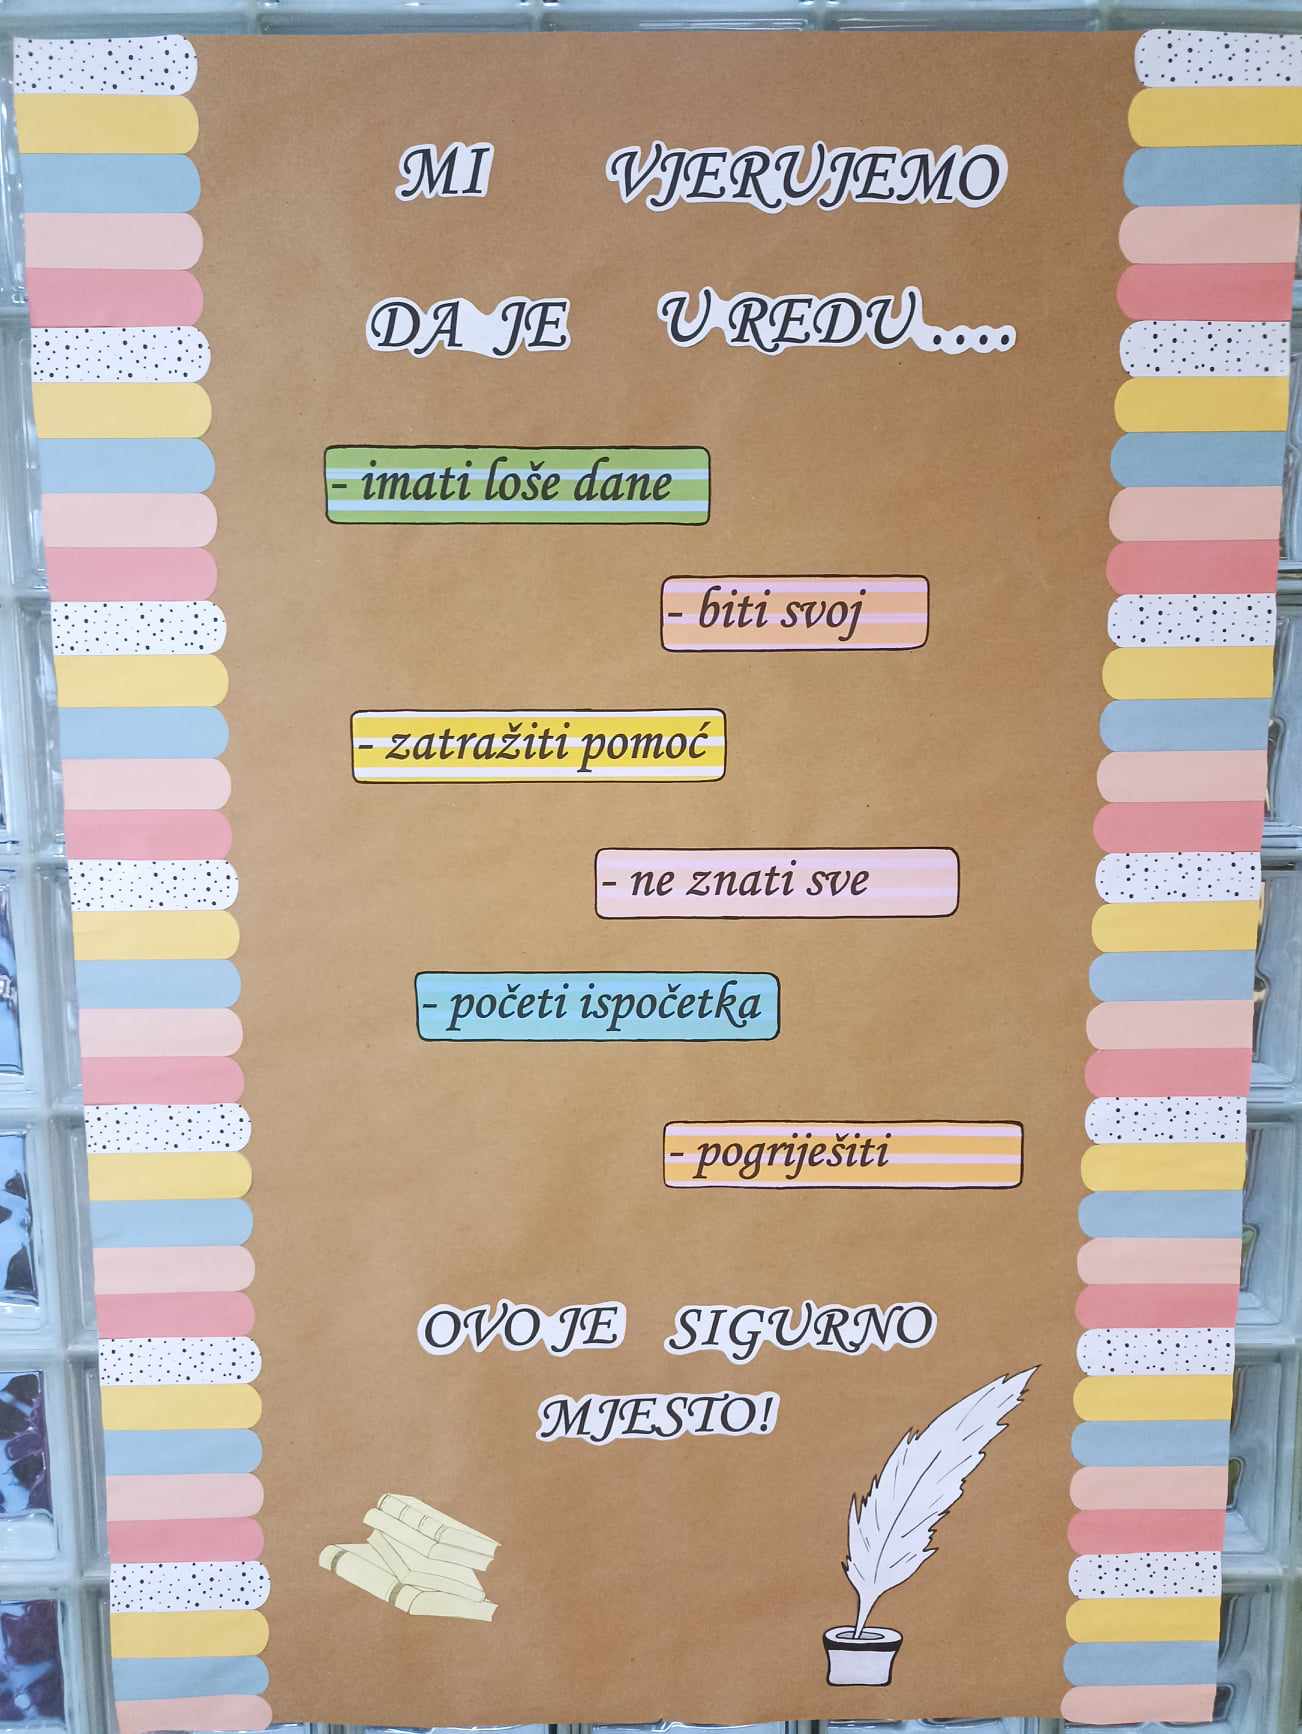 MI VJERUJEMO
DA JE U REDU....
- imati loše dane
- biti svoj
- zatražiti pomoć
- ne znati sve
- početi ispočetka
- pogriješiti
OVO JE SIGURNO
MJESTO!